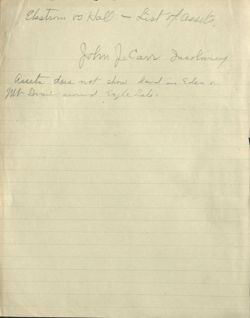 Ekstrom vs Hall - List of Assets
John J. Carr Insolvency
Assets does not show land in Eden or
Mt Desert around Eagle Lake.